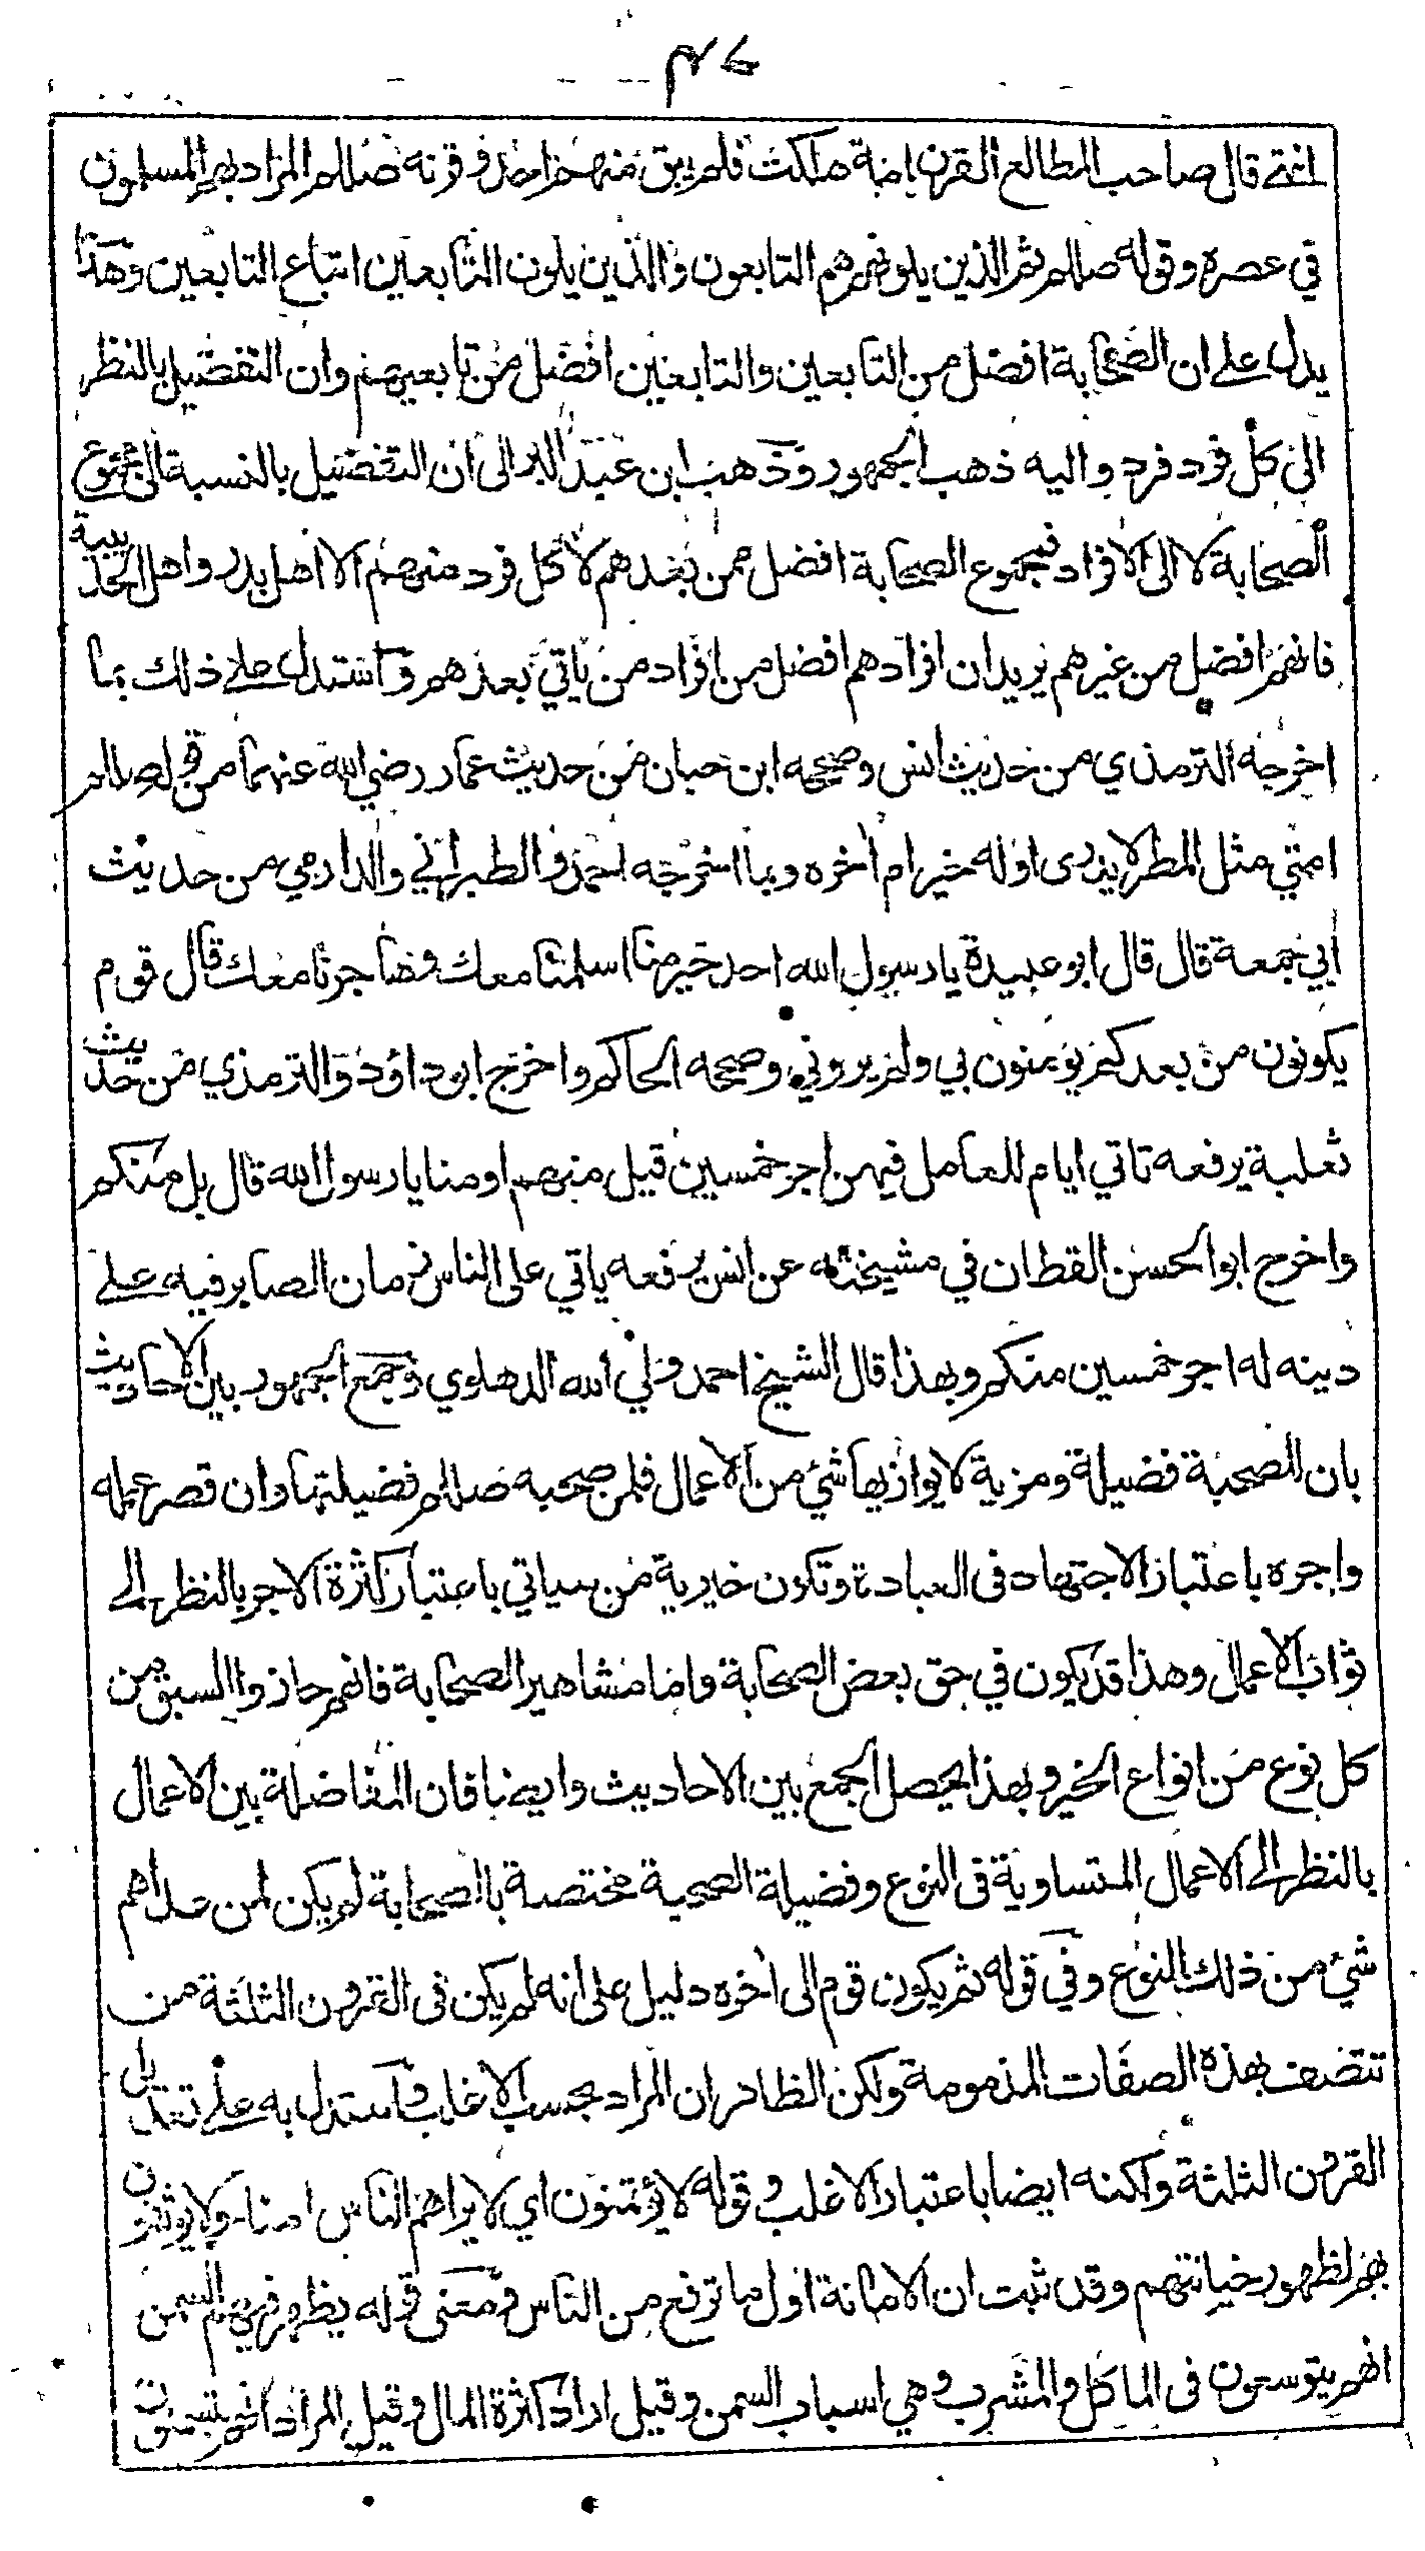 ٤٧
انتهى قال صاحب المطالع القرن امة هلكت فلم يبق منهم احد وقرنه صللم المراد بهم المسلمون
في عصره وقوله صللم ثم الذين يلونهم هم التابعون والذين يلون التابعين اتباع التابعين وهذا
يدل على ان الصحابة افضل من التابعين والتابعين افضل من تابعيهم وان التفضيل بالنظر
الى كل فرد فرد واليه ذهب الجمهور وذهب ابن عبد البر الى ان التفضيل بالنسبة الى مجموع
الصحابة لا الى الافراد فمجموع الصحابة افضل ممن بعدهم لا كل فرد منهم الا اهل بدر واهل الحديبية
فانهم افضل من غيرهم يريد ان افرادهم افضل من افراد من ياتي بعدهم واستدل على ذلك بما
اخرجه الترمذي من حديث انس وصححه ابن حبان من حديث عمار رضي الله عنهما من قوله صللم
امتي مثل المطر لا يدرى اوله خير ام اخره وبما اخرجه احمد والطبراني والدارمي من حديث
ابي جمعة قال قال ابو عبيدة يا رسول الله احد خير منا اسلمنا معك وهاجرنا معك قال قوم
يكونون من بعدكم يؤمنون بي ولم يروني وصححه الحاكم واخرج ابو داؤد والترمذي من حديث
ثعلبة يرفعه تاتي ايام للعامل فيهن اجر خمسين قيل منهم او منا يا رسول الله قال بل منكم
واخرج ابو الحسن القطان في مشيخته عن انس يرفعه ياتي على الناس زمان الصابر فيه على
دينه له اجر خمسين منكم وبهذا قال الشيخ احمد ولي الله الدهلوي وجمع الجمهور بين الاحاديث
بان للصحبة فضيلة ومزية لا يوازيها شئ من الاعمال فلمن صحبه صللم فضيلتها وان قصر عمله
واجره باعتبار الاجتهاد فى العبادة وتكون خيرية من سياتي باعتبار كثرة الاجر بالنظر الى
ثواب الاعمال وهذا قد يكون في حق بعض الصحابة واما مشاهير الصحابة فانهم حازوا السبق من
كل نوع من انواع الخير وبهذا يحصل الجمع بين الاحاديث وايضا فان المفاضلة بين الاعمال
بالنظر الى الاعمال المتساوية فى النوع وفضيلة الصحبة مختصة بالصحابة لم يكن لمن عداهم
شئ من ذلك النوع وفي قوله ثم يكون قوم الى اخره دليل على انه لم يكن فى القرون الثلثة من
تتصف بهذه الصفات المذمومة ولكن الظاهر ان المراد بحسب الاغلب واستدل به على تعديل
القرون الثلثة ولكنه ايضا باعتبار الاغلب وقوله لا يؤتمنون اي لا يراهم الناس امناء ولا يوثقون
بهم لظهور خيانتهم وقد ثبت ان الامانة اول ما ترفع من الناس ومعنى قوله يظهر فيهم السمن
انهم يتوسعون فى الماكل والمشرب وهي اسباب السمن وقيل اراد كثرة المال وقيل المراد انهم يتسمنون